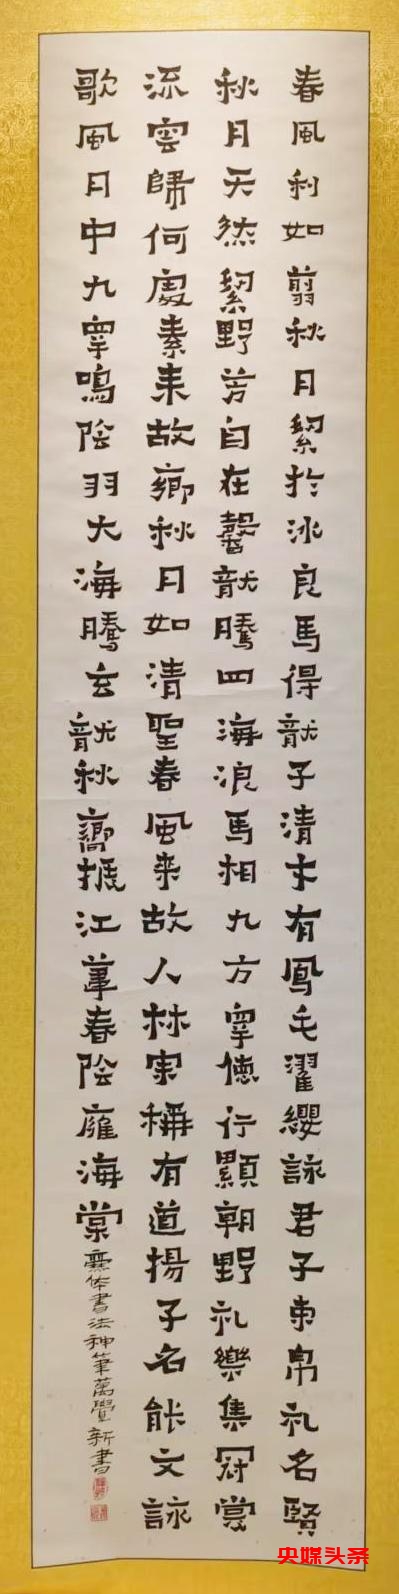 春風利如翦秋月絜於冰良馬得龍子清才有鳳毛濯纓詠君子束帛礼名賢
秋月天然絜野芳自在馨龍騰四海浪馬相九方皋德行顯朝野礼樂集冠裳
流雲歸何處素来故鄉秋月如清聖春風来故人林宗稱有道揚子名能文詠
歌風月中九皋鳴陰羽大海騰玄龍秋振江春陰海棠
爨体書法神筆萬覺新書
央媒头条